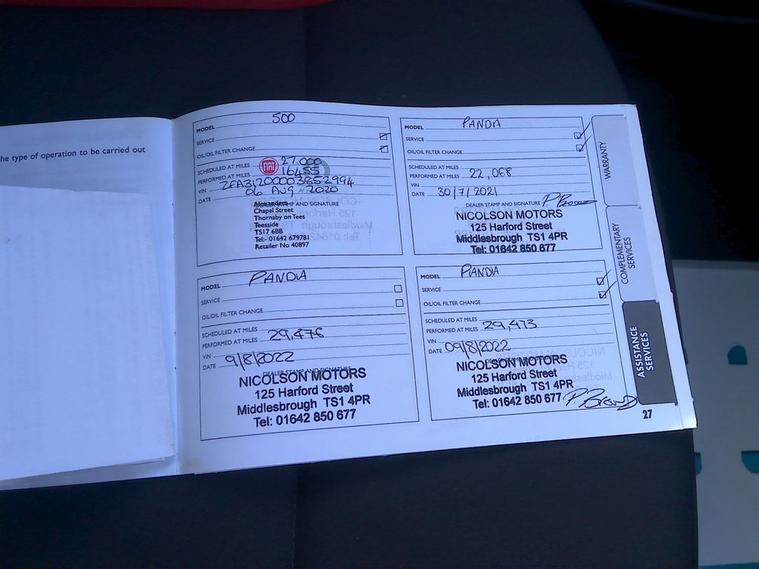 he type of operation to be carried out
MODEL 500
SERVICE
OIL/OIL FILTER CHANGE
SCHEDULED AT MILES 27,000
PERFORMED AT MILES 16455
VIN ZFA31200003852994
DATE 06 AUG 2020
DEALER STAMP AND SIGNATURE
Chapel Street
Thornaby on Tees
Teesside
TS17 6BB
Tel:- 01642 679781
Retailer No 40897
MODEL PANDA
SERVICE
OIL/OIL FILTER CHANGE
SCHEDULED AT MILES
PERFORMED AT MILES 22,068
VIN
DATE 30/7/2021
DEALER STAMP AND SIGNATURE
NICOLSON MOTORS
125 Harford Street
Middlesbrough TS1 4PR
Tel: 01642 850 677
MODEL PANDA
SERVICE
OIL/OIL FILTER CHANGE
SCHEDULED AT MILES
PERFORMED AT MILES 29,476
VIN
DATE 9/8/2022
DEALER STAMP AND SIGNATURE
NICOLSON MOTORS
125 Harford Street
Middlesbrough TS1 4PR
Tel: 01642 850 677
MODEL PANDA
SERVICE
OIL/OIL FILTER CHANGE
SCHEDULED AT MILES
PERFORMED AT MILES 29,473
VIN
DATE 09/8/2022
NICOLSON MOTORS
125 Harford Street
Middlesbrough TS1 4PR
Tel: 01642 850 677
WARRANTY
COMPLEMENTARY
SERVICES
ASSISTANCE
SERVICES
27